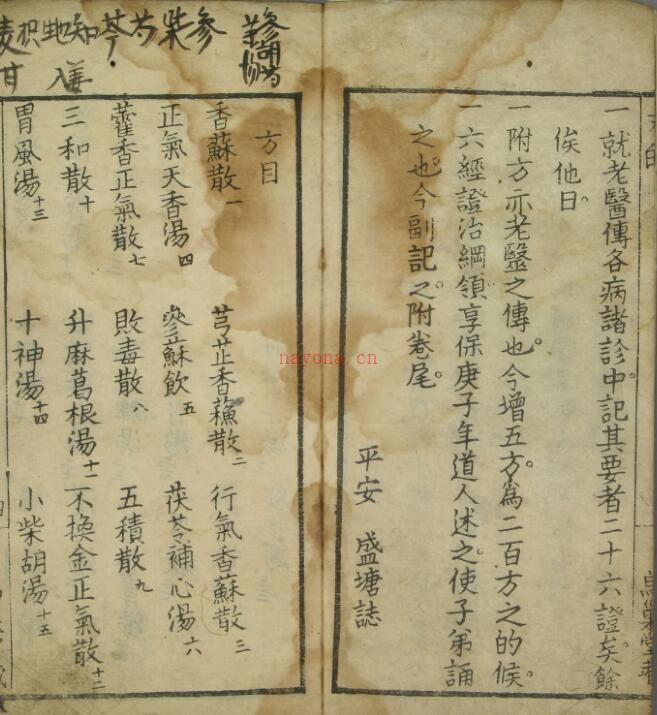 一就老醫傳各病諸診中記其要者二十六證矣。餘
俟他日。
一附方亦老毉之傳也。今增五方。為二百方之的候。
一六經證治綱領享保庚子年道人述之。使子弟誦
之也。今副記之。附卷尾。
平安 盛塘誌
参柴芍芩知地枳麦甘
姜入
方目
香蘇散一 芎芷香蘓散二 行氣香蘇散三
正氣天香湯四 參蘇飲五 茯苓補心湯六
藿香正氣散七 敗毒散八 五積散九
三和散十 升麻葛根湯十一 不換金正氣散十二
胃風湯十三 十神湯十四 小柴胡湯十五
nayona.cn